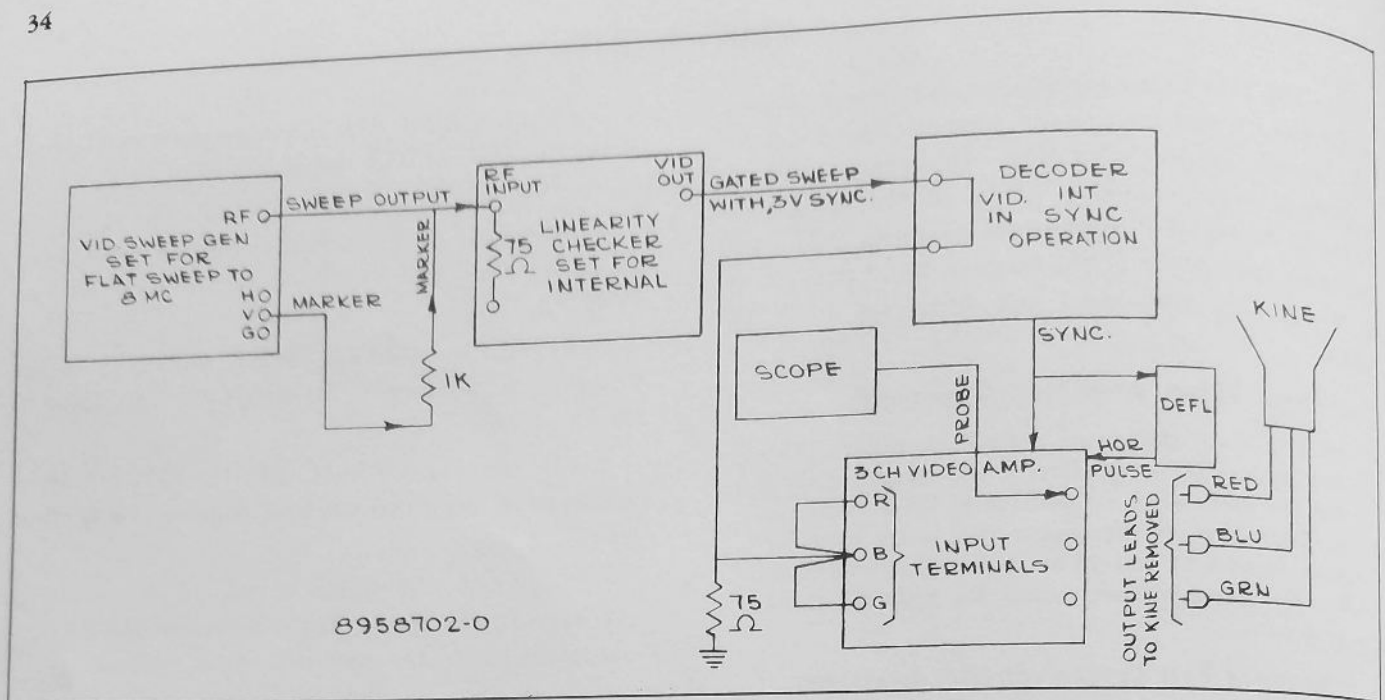 34
VID. SWEEP GEN
SET FOR
FLAT SWEEP TO
8 MC
RF
H
V
G
SWEEP OUTPUT
MARKER
MARKER
1K
RF
INPUT
VID
OUT
75
Ω
LINEARITY
CHECKER
SET FOR
INTERNAL
GATED SWEEP
WITH .3V SYNC.
VID.
IN
DECODER
INT
SYNC
OPERATION
SYNC.
SCOPE
PROBE
DEFL
KINE
HOR
PULSE
3 CH VIDEO AMP.
R
B
G
INPUT
TERMINALS
75
Ω
OUTPUT LEADS
TO KINE REMOVED
RED
BLU
GRN
8958702-0